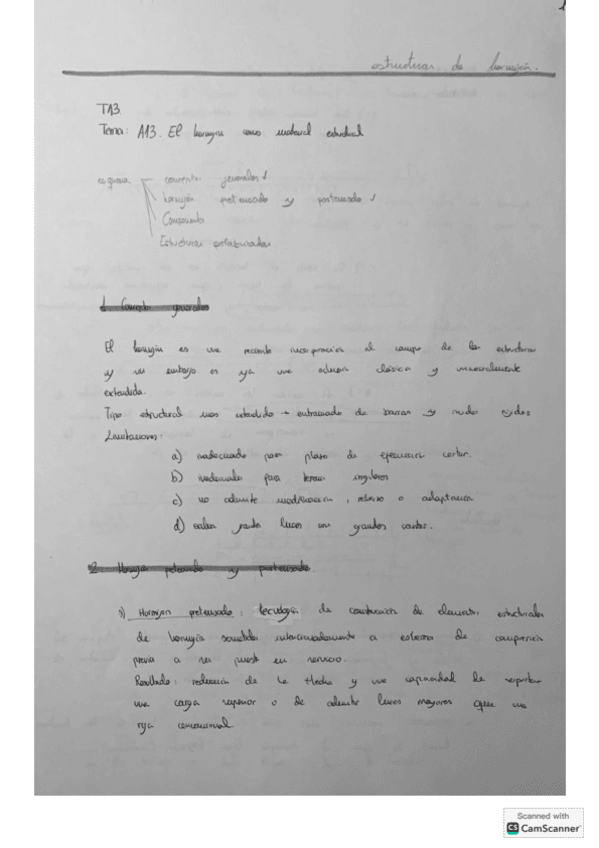 1
estructuras de hormigón.
TA3.
Tema: A13. El hormigón como material estructural
esquema conceptos generales
hormigón pretensado y postensado
Componentes
Estructuras prefabricadas
1. Conceptos generales
El hormigón es una reciente incorporación al campo de las estructuras
y sin embargo es ya una clásica y universalmente
extendida.
Tipo estructural mas extendido → entramado de barras y nudos rígidos
Limitaciones:
a) inadecuado para plazos de ejecucion cortos.
b) inadecuado para terreno singulares
c) no admite modificacion, refuerzo o adaptacion
d) salva grandes luces con grandes cantos.
2. Hormigon pretensado y postensado
1) Hormigon pretensado: tecnología de construccion de elementos estructurales
de hormigón sometidos intencionadamente a esfuerzos de compresion
previa a su puesta en servicio.
Resultado: reduccion de la flecha y una capacidad de soportar
una carga superior o de admitir luces mayores que una
viga convencional.
Scanned with
CS CamScanner